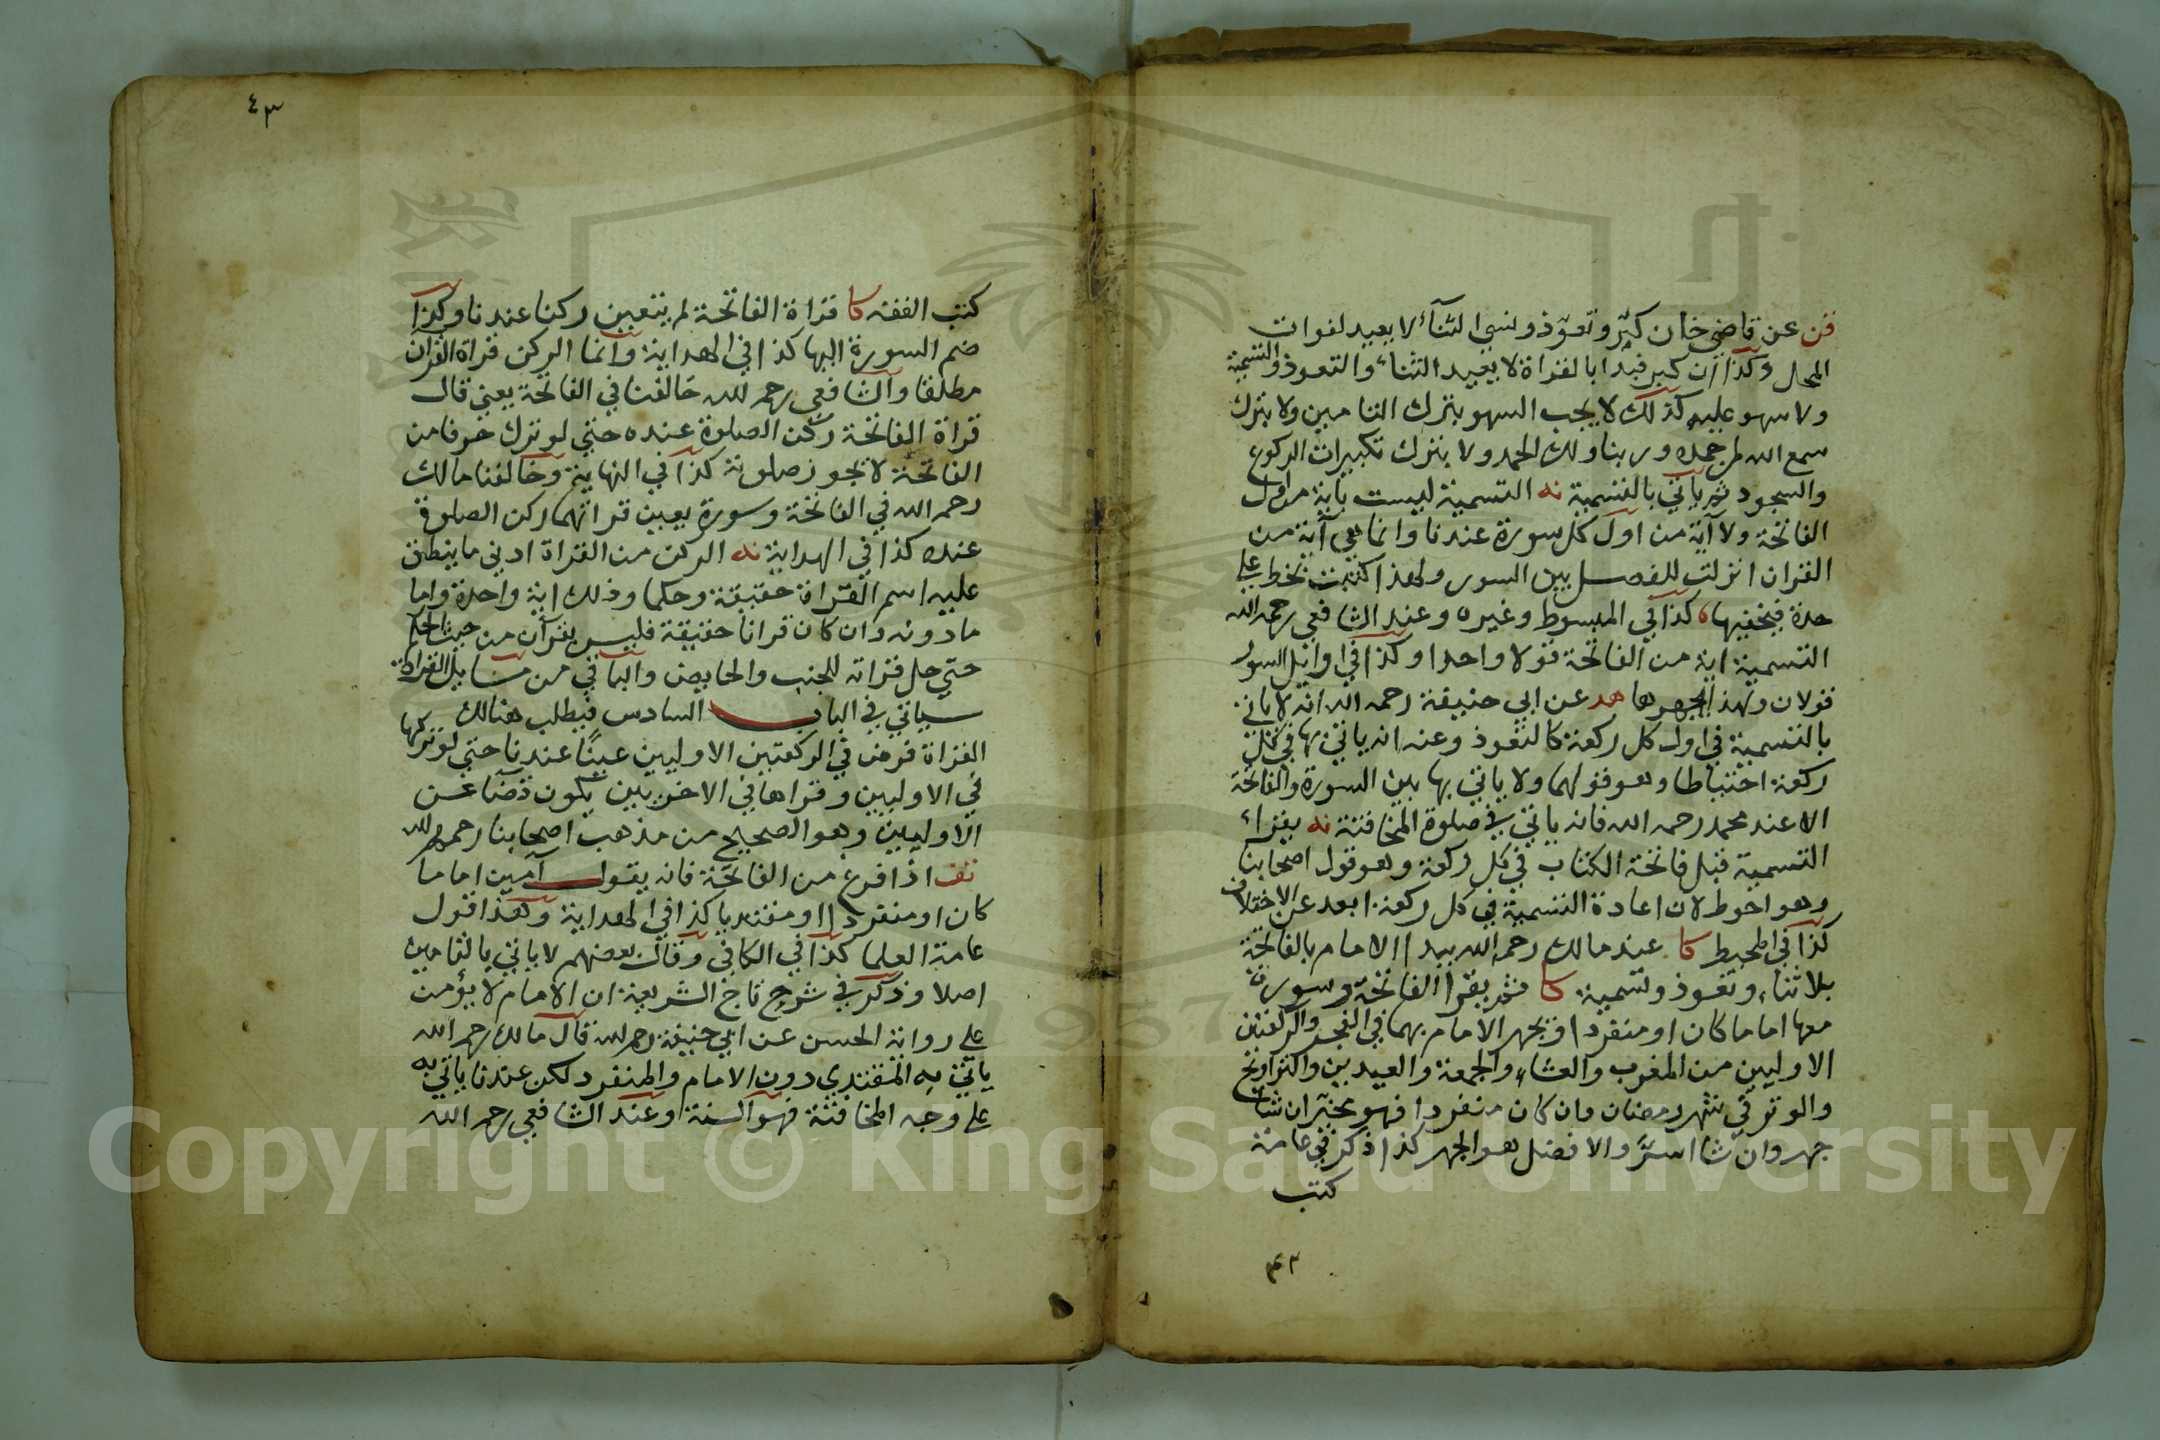 قن عن قاضي خان كبّر وتعوّذ ونسي الثنآء لا يعيد لفوات
المحل وكذا ان كبر فبدا بالقراة لا يعيد الثناء والتعوذ والتسمية
ولا سهو عليه كذلك لا يجب السهو بترك التامين ولا بترك
سمع الله لمن حمده وربنا ولك الحمد ولا بترك تكبيرات الركوع
والسجود ثم ياتي بالتسمية نه التسمية ليست باية من اول
الفاتحة ولا آية من اول كل سورة عندنا وانما هي آية من
القران انزلت للفصل بين السور ولهذا كتبت بخط علي
حدة فيخفيها كذا في المبسوط وغيره وعند الشافعي رحمه الله
التسمية اية من الفاتحة قولا واحدا وكذا في اوائل السور
قولان ولهذا يجهرها هد عن ابي حنيفة رحمه الله انه لا ياتي
بالتسمية في اول كل ركعة كالتعوذ وعنه انه ياتي بها في كل
ركعة احتياطا وهو قولهما ولا ياتي بها بين السورة والفاتحة
الا عند محمد رحمه الله فانه ياتي في صلوة المخافتة نه يقراء
التسمية قبل فاتحة الكتاب في كل ركعة وهو قول اصحابنا
وهو احوط لان اعادة التسمية في كل ركعة ابعد عن الاختلاف
كذا في المحيط كا عند مالك رحمه الله يبدا الامام بالفاتحة
بلا ثناء وتعوذ وتسمية كا ثم يقرا الفاتحة وسورة
معها اماما كان او منفردا ويجهر الامام بهما في الفجر والركعتين
الاوليين من المغرب والعشاء والجمعة والعيدين والتراويح
والوتر في شهر رمضان وان كان منفردا فهو مخيّر ان شاء
جهر وان شا اسرّ والافضل هو الجهر كذا ذكر في عامة
كتب
٤٢
٤٣
كتب الفقه كا قراة الفاتحة لم يتعين ركنا عندنا وكذا
ضم السورة اليها كذا في الهداية وانما الركن قراة القران
مطلقا والشافعي رحمه الله خالفنا في الفاتحة يعني قال
قراة الفاتحة ركن الصلوة عنده حتي لو ترك حرفا من
الفاتحة لا يجوز صلوته كذا في النهاية وخالفنا مالك
رحمه الله في الفاتحة وسورة يعين قراتهما ركن الصلوة
عنده كذا في الهداية نه الركن من القراة ادني ما ينطلق
عليه اسم القراة حقيقة وحكما وذلك اية واحدة واما
ما دونه وان كان قرانا حقيقة فليس بقرآن من حيث الحكم
حتي حل قراته للجنب والحايض والباقي من مسايل القراة
سياتي في الباب السادس فيطلب هنالك
القراة فرض في الركعتين الاوليين عينًا عندنا حتي لو تركها
في الاوليين وقراها في الاخريين يكون قضا عن
الاوليين وهو الصحيح من مذهب اصحابنا رحمهم الله
تف اذا فرغ من الفاتحة فانه يقول آمين اماما
كان او منفردا او مقتديا كذا في الهداية وهذا قول
عامة العلما كذا في الكافي وقال بعضهم لا ياتي بالتامين
اصلا وذكر في شرح تاج الشريعة ان الامام لا يؤمن
علي رواية الحسن عن ابي حنيفة رحمه الله قال مالك رحمه الله
ياتي به المقتدي دون الامام والمنفرد لكن عندنا ياتي به
علي وجه المخافتة فهو السنة وعند الشافعي رحمه الله
Copyright © King Saud University
1957